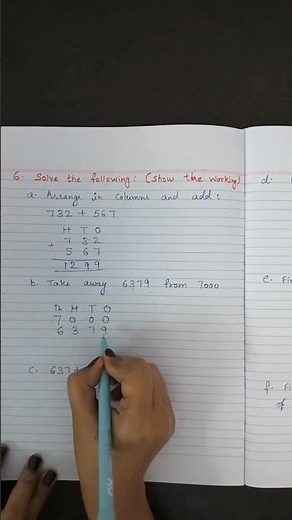 6. Solve the following: (Show the working)
a. Arrange in columns and add:
732 + 567
H T O
7 3 2
+ 5 6 7
1 2 9 9
b. Take away 6379 from 7000
Th H T O
7 0 0 0
6 3 7 9
c. 637
d.
e. Fin
f. A
of